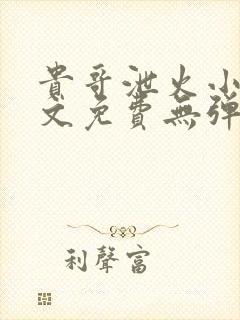 貴哥泄火小
文免費無彈
利聲富